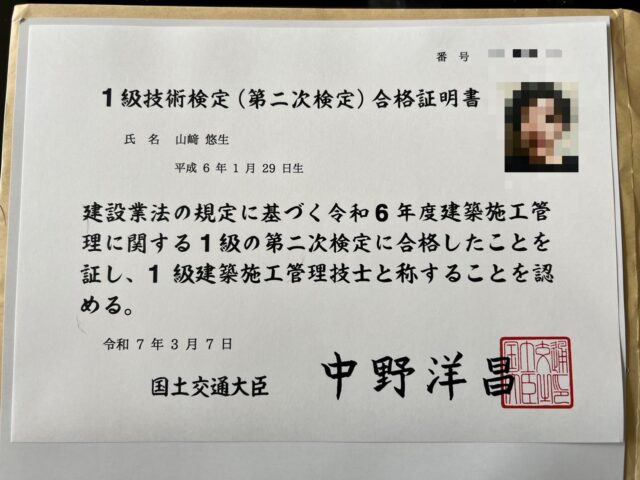 番 号
1級技術検定(第二次検定)合格証明書
氏 名 山﨑 悠生
平成 6 年 1 月 29 日生
建設業法の規定に基づく令和 6 年度建築施工管
理に関する 1 級の第二次検定に合格したことを
証し、1 級建築施工管理技士と称することを認
める。
令和 7 年 3 月 7 日
国土交通大臣 中野洋昌